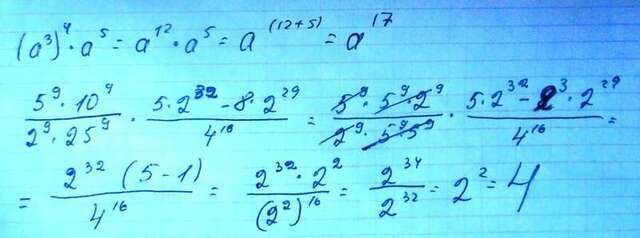 (a³)⁴ · a⁵ = a¹² · a⁵ = a⁽¹²⁺⁵⁾ = a¹⁷
5⁹ · 10⁹ / 2⁹ · 25⁹ · 5 · 2³² - 8 · 2²⁹ / 4¹⁶ = 5⁹ · 5⁹ · 2⁹ / 2⁹ · 5⁹ · 5⁹ · 5 · 2³² - 2³ · 2²⁹ / 4¹⁶ =
= 2³² (5 - 1) / 4¹⁶ = 2³² · 2² / (2²)¹⁶ = 2³⁴ / 2³² = 2² = 4